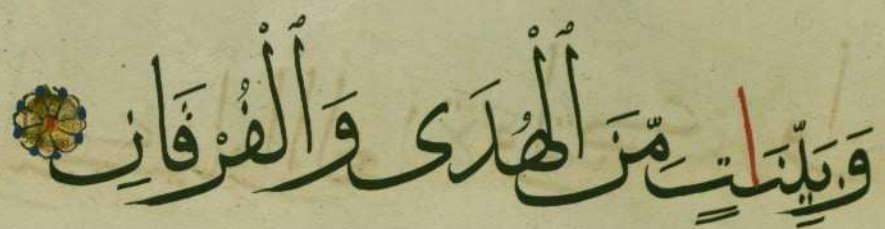 وَبَيِّنَاتٍ مِّنَ ٱلْهُدَى وَٱلْفُرْقَانِ